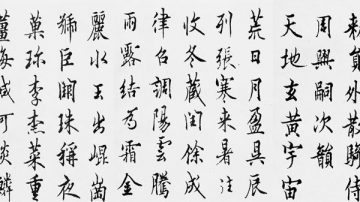 勅員外散騎侍
周興嗣次韻
天地玄黃宇宙
荒日月盈昃辰
列張寒来暑往
收冬藏閏餘成
律召調陽雲騰
雨露結為霜金
麗水玉出崐崗
號巨闕珠稱夜
菓珍李柰菜重
薑海鹹河淡鱗